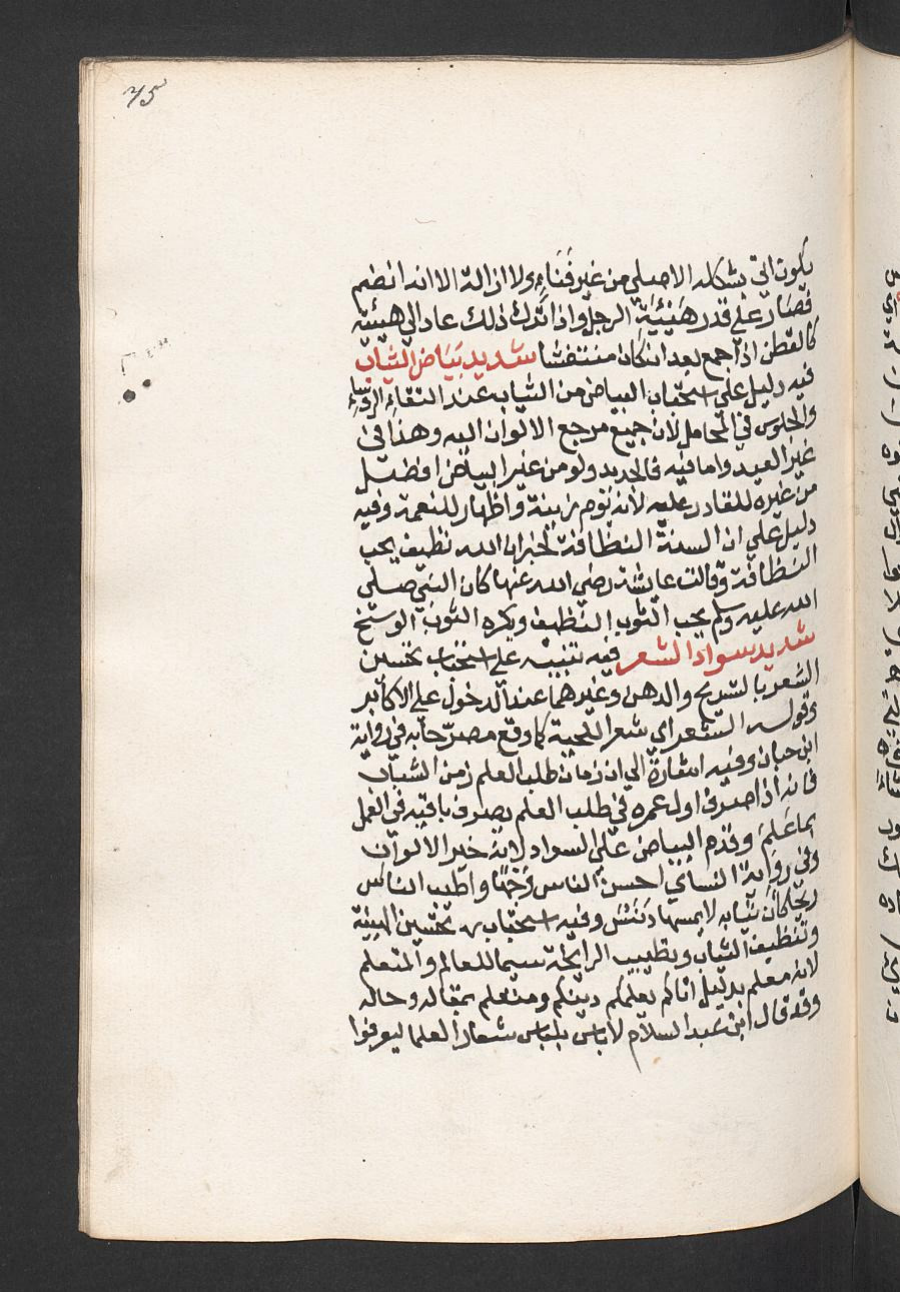 75
يكون اتي بشكله الاصلي من غير فَنَاءٍ ولا ازالة الا انه انضم
فصَار علي قدر هَيْئَة الرجل واذا ترك ذلك عاد الي هيئته
كالقطن اذا جمع بعد ان كان منتفشا شديد بَيَاض الثياب
فيه دليل علي استحباب البياض من الثياب عند التقاء الروسا
والجلوس في المحامل لان جميع مرجع الالوان اليه وهذا في
غير العيد واما فيه فالجديد ولو من غير البياض افضل
من غيره للقادر عليه لانه يوم زينة واظهار للنعمة وفيه
دليل علي ان السنة النظافة لخبر ان الله نظيف يحب
النظافة وقالت عايشة رضي الله عنها كان النبي صلي
الله عليه وسلم يحب الثوب النظيف ويكره الثوب الوسخ
شديد سواد الشعر فيه تنبيه علي استحباب تحسين
الشعر بالتسريح والدهن وغيرهما عند الدخول علي الاكابر
وقوله الشعر اي شعر اللحية كما وقع مصرّحا به في رواية
ابن حبان وفيه اشارة الي ان زمان طلب العلم زمن الشباب
فانه اذا صرف اول عمره في طلب العلم يصرف باقيه في العمل
بما علم وقدم البياض علي السواد لانه خير الالوان
وفي رواية النسائي احسن الناس وَجْهًا واطيب الناس
ريحا كأن ثيابه لا يمسها دَنَسٌ وفيه استحباب تحسين الهيئة
وتنظيف الثياب وتطييب الرايحة سيما للعالم والمتعلم
لانه معلم بدليل اتاكم يعلمكم دينكم ومتعلم بمقاله وحاله
وقد قال ابن عبد السلام لا باس بلباس شعار العلما ليعرفوا